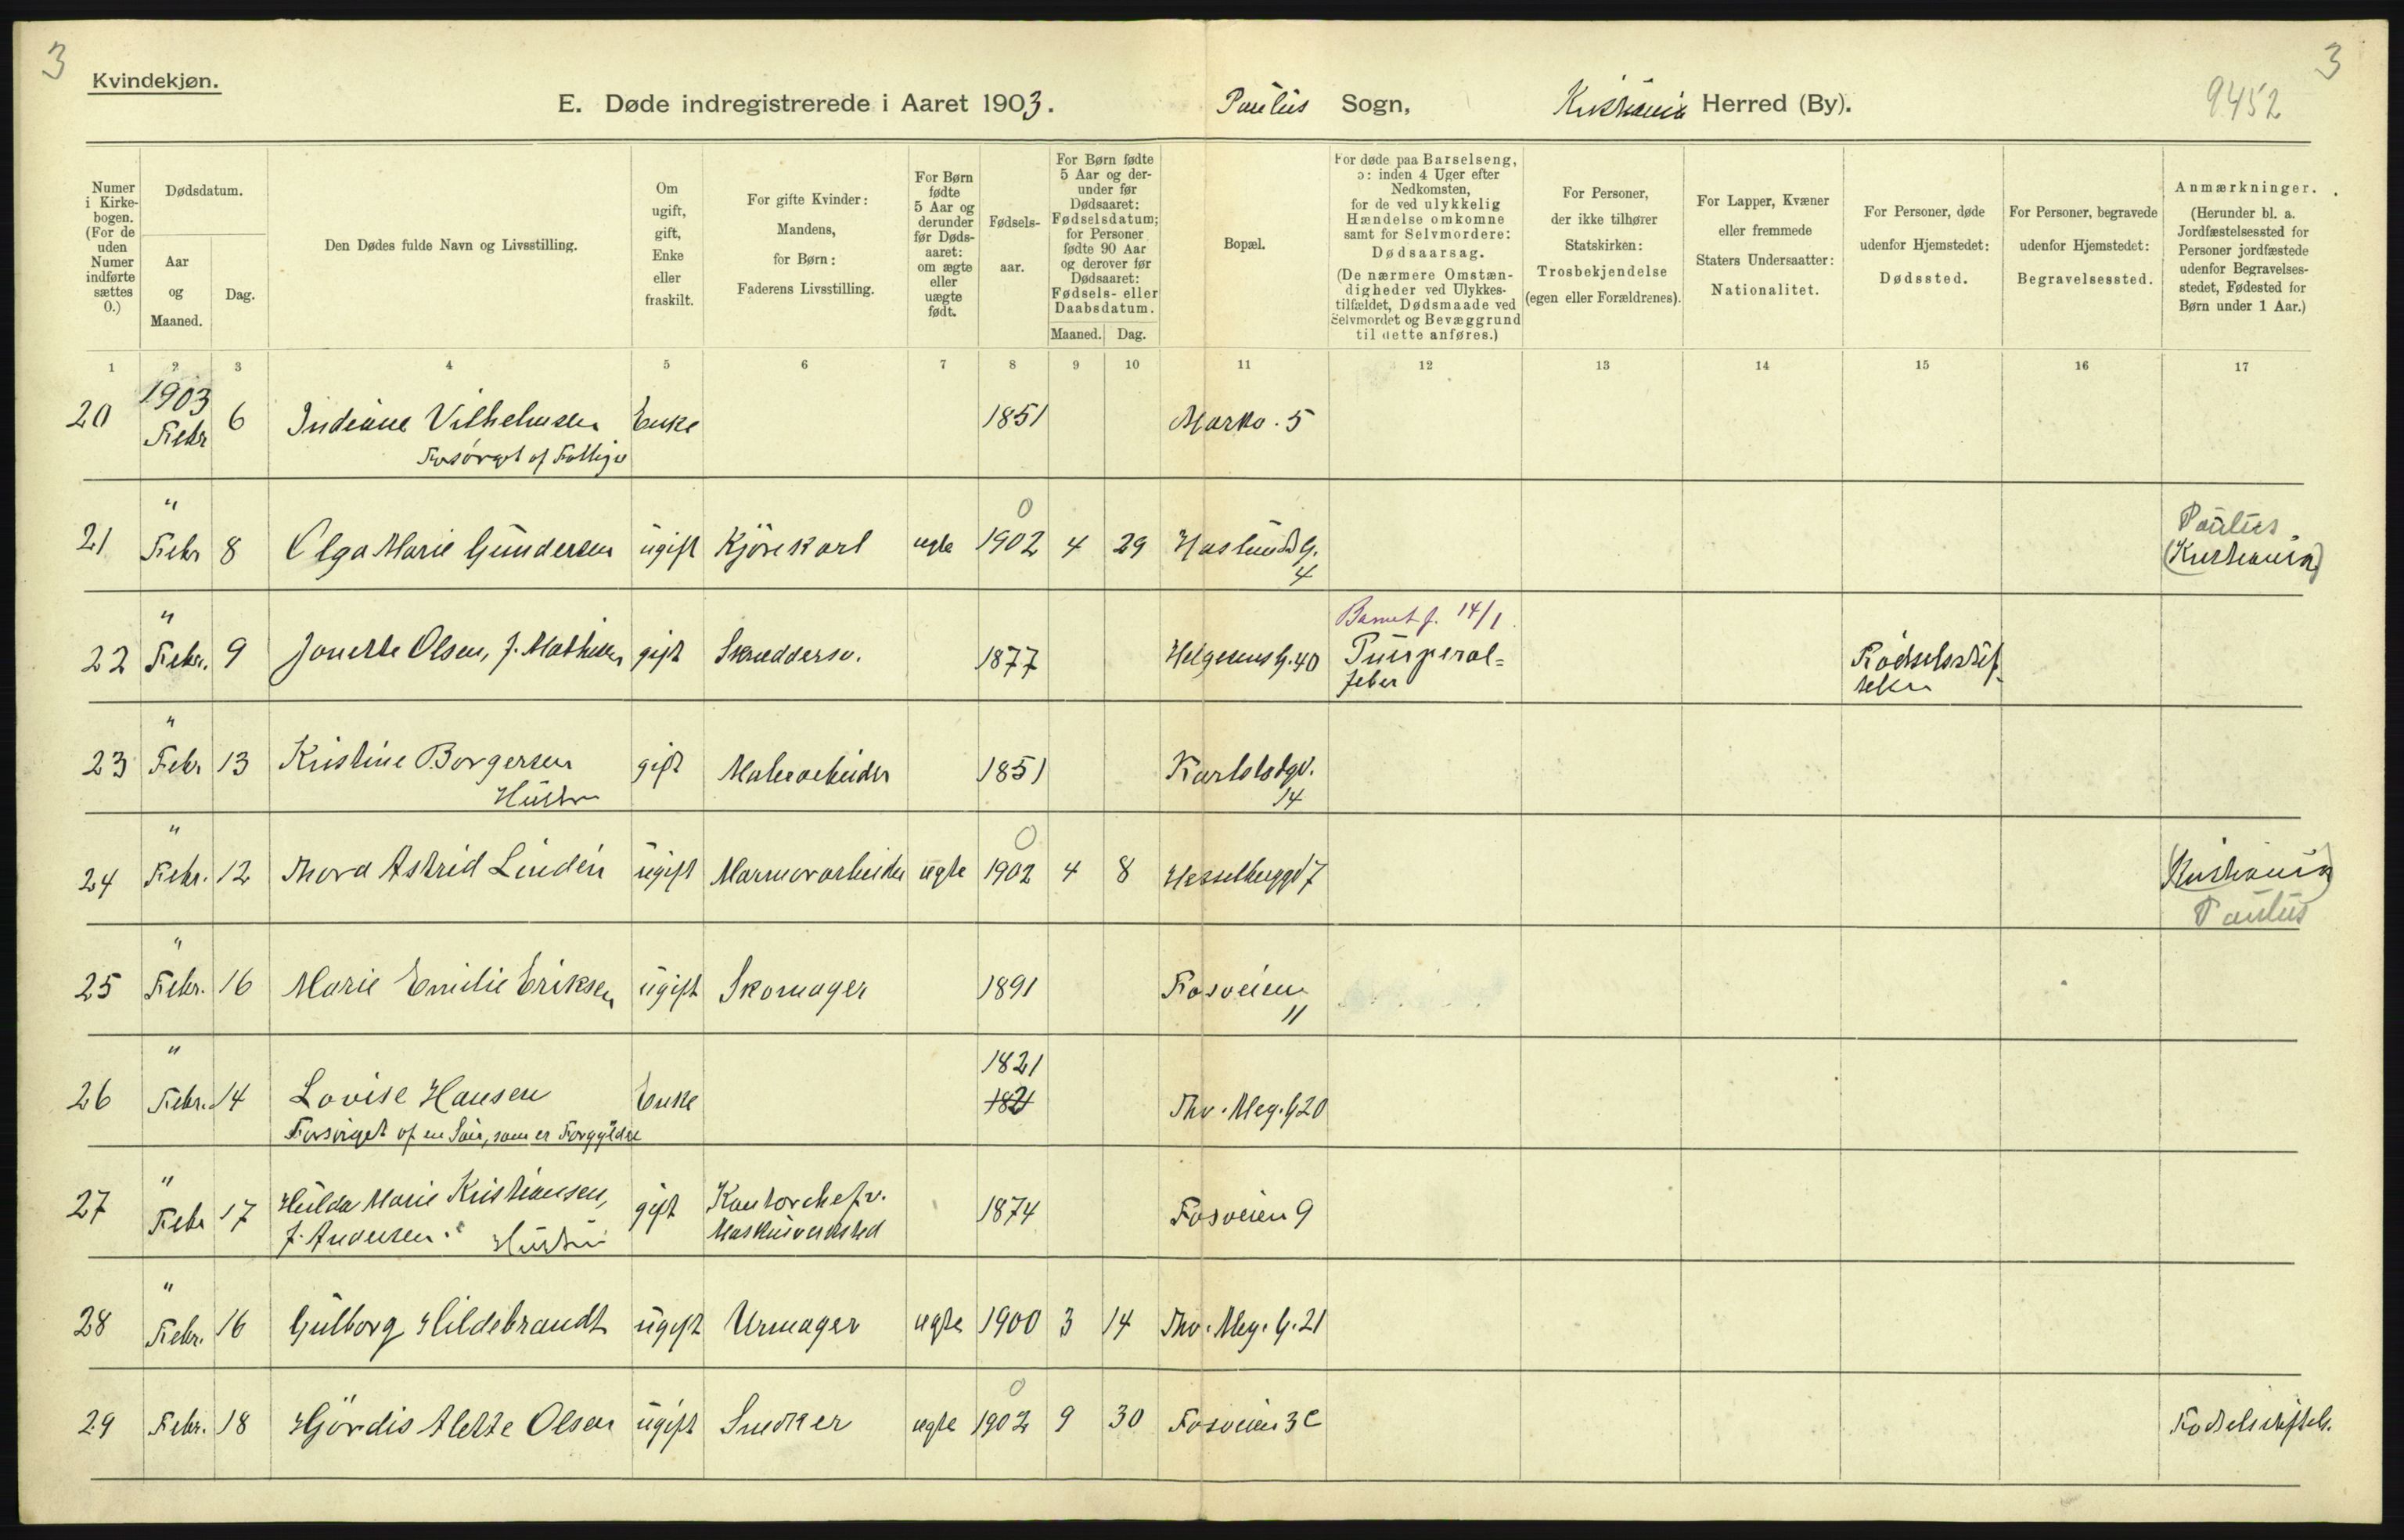 3
3
Kvindekjøn.
E. Døde indregistrerede i Aaret 1903.
Paulus Sogn,
Kristiania Herred (By).
9452
Numer i Kirke-
bogen.
(For de
uden
Numer
indførte
sættes
0.)
Dødsdatum.
Aar
og
Maaned.
Dag.
Den Dødes fulde Navn og Livsstilling.
Om
ugift,
gift,
Enke
eller
fraskilt.
For gifte Kvinder:
Mandens,
for Børn:
Faderens Livsstilling.
For Børn
fødte
5 Aar og
derunder
før Døds-
aaret:
om ægte
eller
uægte
født.
Fødsels-
aar.
For Børn fødte
5 Aar og der-
under før
Dødsaaret:
Fødselsdatum;
for Personer
fødte 90 Aar
og derover før
Dødsaaret:
Fødsels- eller
Daabsdatum.
Maaned. Dag.
Bopæl.
For døde paa Barselseng,
ɔ: inden 4 Uger efter
Nedkomsten,
for de ved ulykkelig
Hændelse omkomne
samt for Selvmordere:
Dødsaarsag.
(De nærmere Omstæn-
digheder ved Ulykkes-
tilfældet, Dødsmaade ved
Selvmordet og Bevæggrund
til dette anføres.)
For Personer,
der ikke tilhører
Statskirken:
Trosbekjendelse
(egen eller Forældrenes).
For Lapper, Kvæner
eller fremmede
Staters Undersaatter:
Nationalitet.
For Personer, døde
udenfor Hjemstedet:
Dødssted.
For Personer, begravede
udenfor Hjemstedet:
Begravelsessted.
Anmærkninger.
(Herunder bl. a.
Jordfæstelsessted for
Personer jordfæstede
udenfor Begravelses-
stedet, Fødested for
Børn under 1 Aar.)
1 2 3 4 5 6 7 8 9 10 11 12 13 14 15 16 17
1903
20 Febr 6 Indiane Vilhelmsen Enke 1851 Markv. 5
Forsørget af Fattigv
"
0
Paulus
21 Febr 8 Olga Marie Gundersen ugift Kjørekarl ægte 1902 4 29 Haslunds G. (Kristiania)
4
"
Barnet f. 14/1.
22 Febr. 9 Jonette Olsen, f. Mathisen gift Skræddersv. 1877 Helgesens G. 40 Puerperal= Fødselsstif-
feber
telsen
"
23 Febr 13 Kristine Borgersen gift Malerarbeider 1851 Karlstadgd.
Hustru
14
"
0
24 Febr. 12 Thora Astrid Lindén ugift Marmorarbeider ægte 1902 4 8 Hesselberggd 7 (Kristiania)
Paulus
"
25 Febr. 16 Marie Emilie Eriksen ugift Skomager 1891 Fosveien
11
"
1821
26 Febr. 14 Lovise Hansen Enke 1821 Thv. Meg. G 20
Forsørget af en Søn, som er Forgylder
"
27 Febr 17 Hulda Marie Kristiansen, gift Kontorchef v. 1874 Fosveien 9
f. Andersen. Hustru
Maskinverksted
"
28 Febr. 16 Gulborg Hildebrandt ugift Urmager ægte 1900 3 14 Thv. Meg. G. 21
0
29 Febr. 18 Hjørdis Alette Olsen ugift Snedker ægte 1902 9 30 Fosveien 3 c Fødselsstiftels.